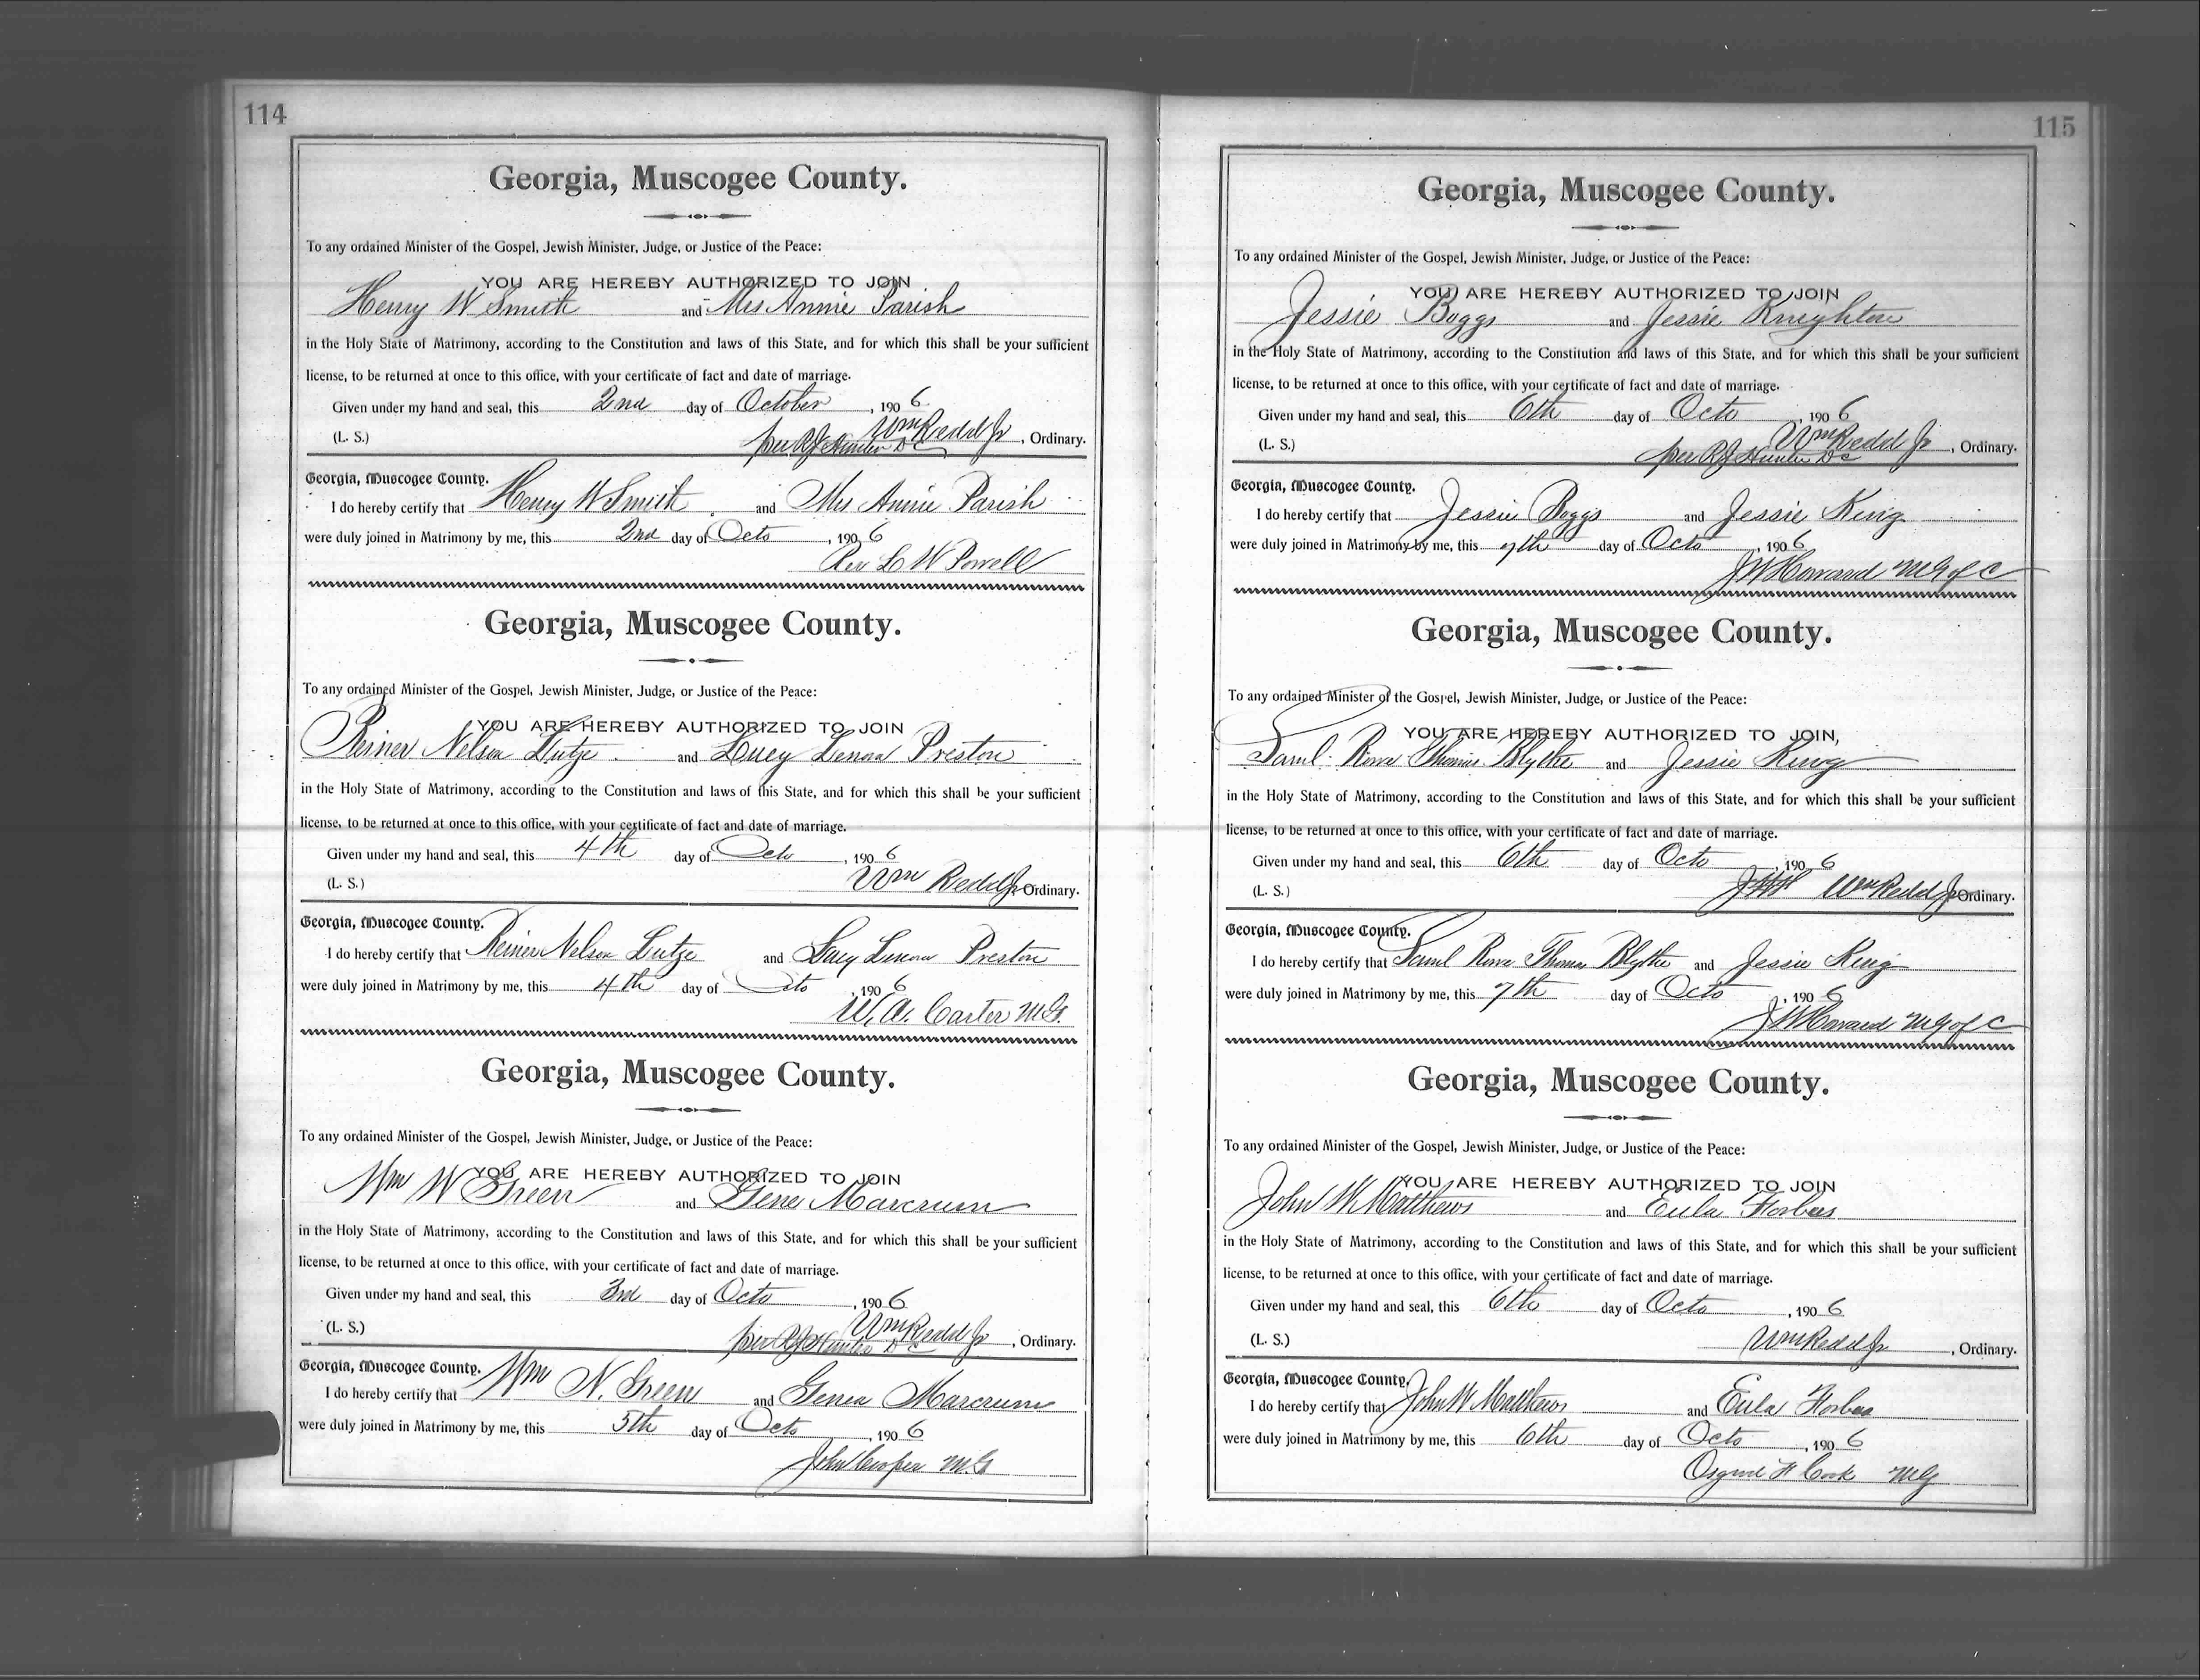 114
Georgia, Muscogee County.
To any ordained Minister of the Gospel, Jewish Minister, Judge, or Justice of the Peace:
YOU ARE HEREBY AUTHORIZED TO JOIN
Henry W Smith and Mrs Annie Parish
in the Holy State of Matrimony, according to the Constitution and laws of this State, and for which this shall be your sufficient
license, to be returned at once to this office, with your certificate of fact and date of marriage.
Given under my hand and seal, this 2nd day of October, 1906
(L. S.) Wm Redd Jr, Ordinary.
per R J Hunter D C
Georgia, Muscogee County.
I do hereby certify that Henry W Smith and Mrs Annie Parish
were duly joined in Matrimony by me, this 2nd day of Octo, 1906
Rev L W Powell
Georgia, Muscogee County.
To any ordained Minister of the Gospel, Jewish Minister, Judge, or Justice of the Peace:
YOU ARE HEREBY AUTHORIZED TO JOIN
Reiner Nelson Lutze and Lucy Lenora Preston
in the Holy State of Matrimony, according to the Constitution and laws of this State, and for which this shall be your sufficient
license, to be returned at once to this office, with your certificate of fact and date of marriage.
Given under my hand and seal, this 4th day of Octo, 1906
(L. S.) Wm Redd Jr Ordinary.
Georgia, Muscogee County.
I do hereby certify that Reiner Nelson Lutze and Lucy Lenora Preston
were duly joined in Matrimony by me, this 4th day of Octo, 1906
W. A. Carter M.G.
Georgia, Muscogee County.
To any ordained Minister of the Gospel, Jewish Minister, Judge, or Justice of the Peace:
YOU ARE HEREBY AUTHORIZED TO JOIN
Wm W Green and Gene Marcrum
in the Holy State of Matrimony, according to the Constitution and laws of this State, and for which this shall be your sufficient
license, to be returned at once to this office, with your certificate of fact and date of marriage.
Given under my hand and seal, this 3rd day of Octo, 1906
(L. S.) Wm Redd Jr, Ordinary.
per R J Hunter D C
Georgia, Muscogee County.
I do hereby certify that Wm N. Green and Genea Marcrum
were duly joined in Matrimony by me, this 5th day of Octo, 1906
John Cooper M.G
115
Georgia, Muscogee County.
To any ordained Minister of the Gospel, Jewish Minister, Judge, or Justice of the Peace:
YOU ARE HEREBY AUTHORIZED TO JOIN
Jessie Boggs and Jessie Knighton
in the Holy State of Matrimony, according to the Constitution and laws of this State, and for which this shall be your sufficient
license, to be returned at once to this office, with your certificate of fact and date of marriage.
Given under my hand and seal, this 6th day of Octo, 1906
(L. S.) Wm Redd Jr, Ordinary.
per R J Hunter D C
Georgia, Muscogee County.
I do hereby certify that Jessie Boggs and Jessie King
were duly joined in Matrimony by me, this 7th day of Octo, 1906
J W Howard M G of C
Georgia, Muscogee County.
To any ordained Minister of the Gospel, Jewish Minister, Judge, or Justice of the Peace:
YOU ARE HEREBY AUTHORIZED TO JOIN,
Saml. Thomas Blythe and Jessie King
in the Holy State of Matrimony, according to the Constitution and laws of this State, and for which this shall be your sufficient
license, to be returned at once to this office, with your certificate of fact and date of marriage.
Given under my hand and seal, this 6th day of Octo, 1906
(L. S.) Wm Redd Jr Ordinary.
Georgia, Muscogee County.
I do hereby certify that Saml Thomas Blythe and Jessie King
were duly joined in Matrimony by me, this 7th day of Octo, 1906
J W Howard M G of C
Georgia, Muscogee County.
To any ordained Minister of the Gospel, Jewish Minister, Judge, or Justice of the Peace:
YOU ARE HEREBY AUTHORIZED TO JOIN
John W Matthews and Eula Forbus
in the Holy State of Matrimony, according to the Constitution and laws of this State, and for which this shall be your sufficient
license, to be returned at once to this office, with your certificate of fact and date of marriage.
Given under my hand and seal, this 6th day of Octo, 1906
(L. S.) Wm Redd Jr, Ordinary.
Georgia, Muscogee County.
I do hereby certify that John W Matthews and Eula Forbus
were duly joined in Matrimony by me, this 6th day of Octo, 1906
Osgood F Cook M G